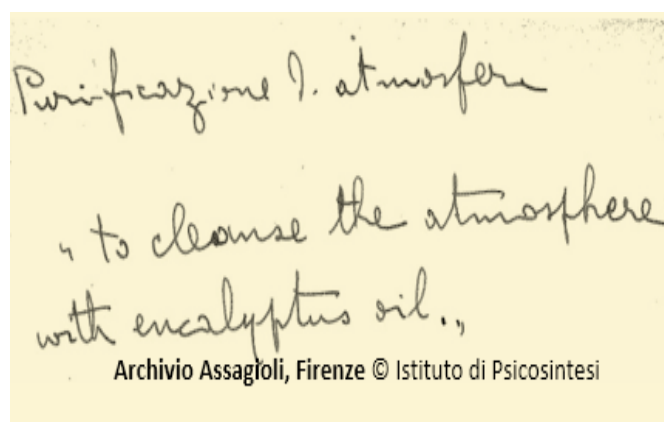 Purificazione d. atmosfera
„ to cleanse the atmosphere
with eucalyptus oil.„
Archivio Assagioli, Firenze © Istituto di Psicosintesi